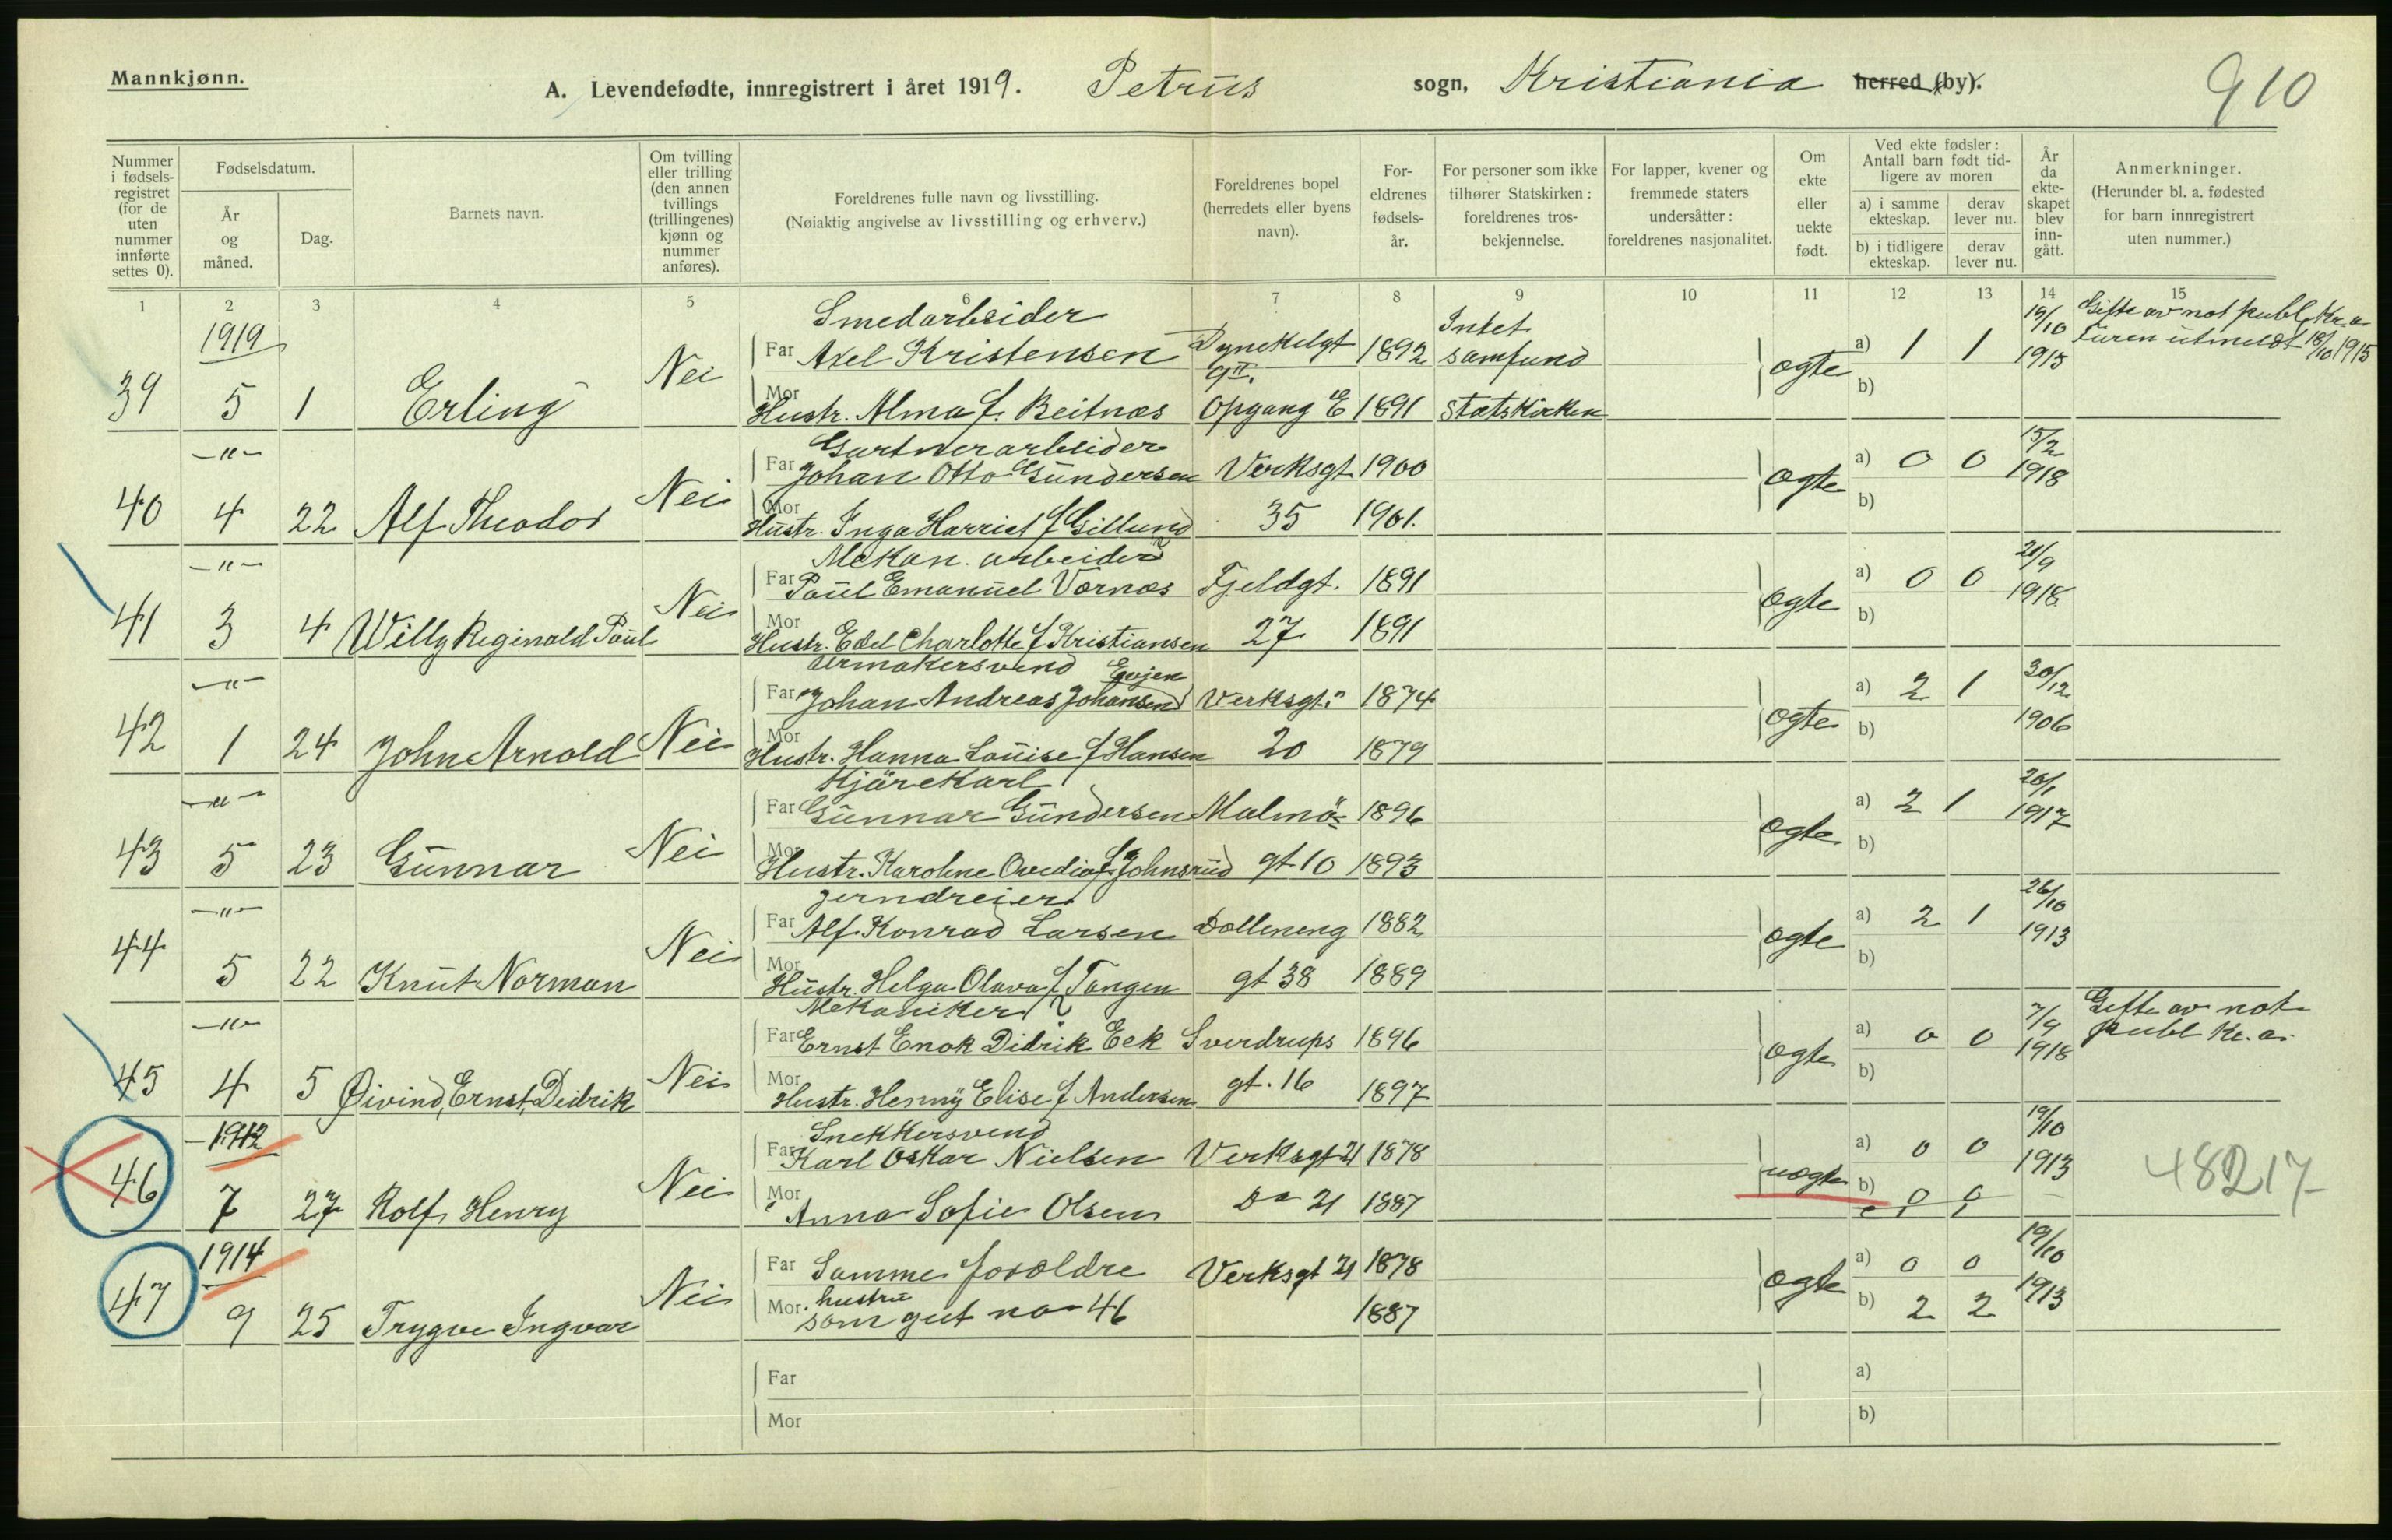 Mannkjønn.
A. Levendefødte, innregistrert i året 1919. Petrus sogn, Kristiania herred (by).
910
Nummer i fødsels-registret (for de uten nummer innførte settes 0).
Fødselsdatum.
År og måned.
Dag.
Barnets navn.
Om tvilling eller trilling (den annen tvillings (trillingenes) kjønn og nummer anføres).
Foreldrenes fulle navn og livsstilling.
(Nøiaktig angivelse av livsstilling og erhverv.)
Foreldrenes bopel (herredets eller byens navn).
For-eldrenes fødsels-år.
For personer som ikke tilhører Statskirken: foreldrenes tros-bekjennelse.
For lapper, kvener og fremmede staters undersåtter: foreldrenes nasjonalitet.
Om ekte eller uekte født.
Ved ekte fødsler: Antall barn født tid-ligere av moren
a) i samme ekteskap.
derav lever nu.
b) i tidligere ekteskap.
derav lever nu.
År da ekte-skapet blev inn-gått.
Anmerkninger.
(Herunder bl. a. fødested for barn innregistrert uten nummer.)
1 2 3 4 5 6 7 8 9 10 11 12 13 14 15
1919 Smedarbeider Intet 19/10 Gifte av not publ, Kr.a.
39 5 1 Erling Nei Far Axel Kristensen Dynekilgt 1892 samfund ægte a) 1 1 1915 Faren utmeldt 18/10 1915
9 II.
Mor Hustr. Alma f. Beitnæs Opgang E 1891 Statskirken b)
-"- Gartnerarbeider 15/2
40 4 22 Alf Theodor Nei Far Johan Otto Gundersen Verksgt 1900 ægte a) 0 0 1918
Mor Hustr. Inga Harriet f Gillund 35 1901. b)
-"- Mekan. arbeider 21/9
41 3 4 Willy Reginald Paul Nei Far Paul Emanuel Vornæs Fjeldgt. 1891 ægte a) 0 0 1918
Mor Hustr. Edel Charlotte f Kristiansen 27 1891 b)
-"- Evjen 30/12
42 1 24 John Arnold Nei Far Johan Andreas Johansen Verksgt. 1874 ægte a) 2 1 1906
Mor Hustr. Hanna Louise f Hansen 20 1879 b)
-"- Kjörekarl 20/1
43 5 23 Gunnar Nei Far Gunnar Gundersen Malmö= 1896 ægte a) 2 1 1917
Mor Hustr. Karoline Ovedia f. Johnsrud gt 10 1893 b)
-"- Jerndreier 26/10
44 5 22 Knut Norman Nei Far Alf Konrad Larsen Dælleneng 1882 ægte a) 2 1 1913
Mor Hustr. Helga Olava f Tangen gt 38 1889 b)
-"- Mekaniker 7/9 Gifte av not
45 4 5 Øivind, Ernst, Deidrik Nei Far Ernst Enok Didrik Eek Sverdrups 1896 ægte a) 0 0 1918 publ Kr.a.
Mor Hustr. Henny Elise f Andersen gt. 16 1897 b)
1912 Snekkersvend 19/10
46 7 27 Rolf Henry Nei Far Karl Oskar Nielsen Verksgt 21 1878 uægte a) 0 0 1913 48217
Mor Anna Sofie Olsen Do 21 1887 b) 0 0
1914 19/10
47 9 25 Trygve Ingvar Nei Far Samme forældre Verksgt 21 1878 ægte a) 0 0 1913
Mor hustru som gut no 46 1887 b) 2 2
Far a)
Mor b)